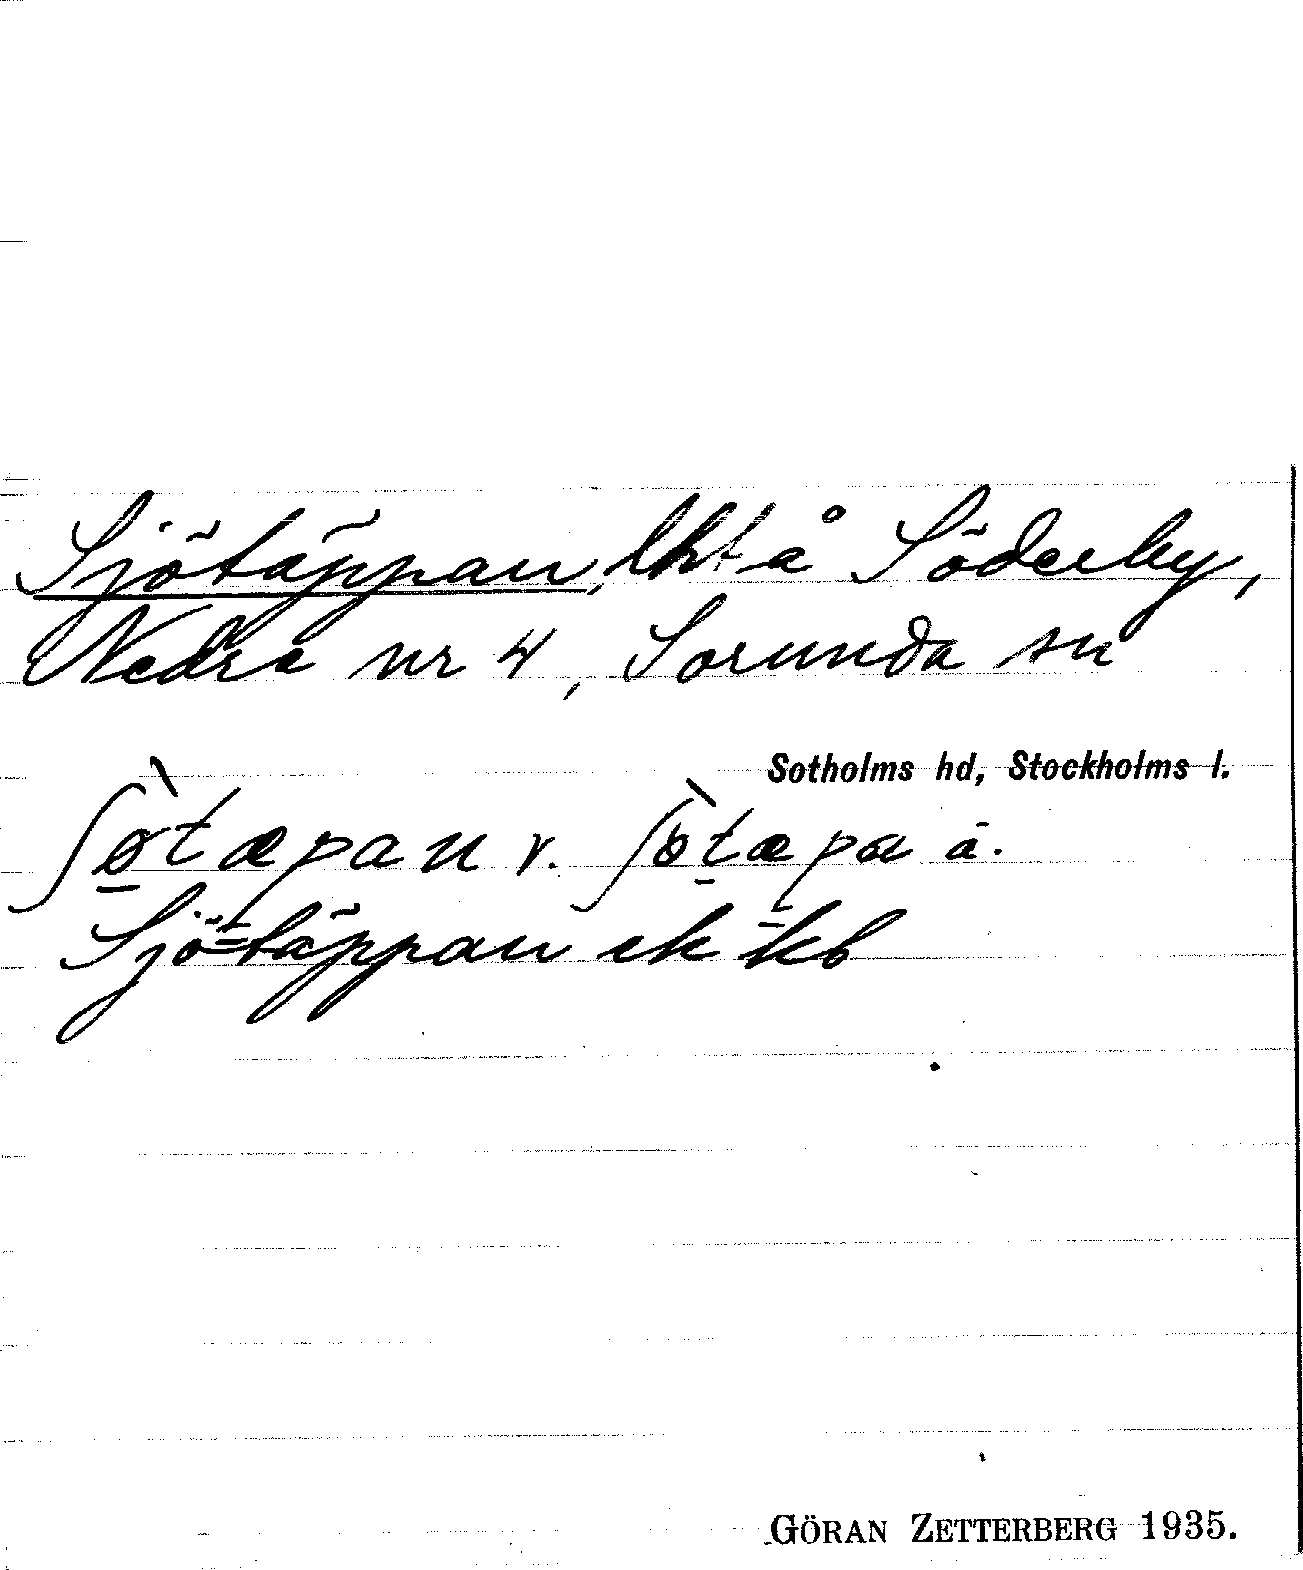 Sjötäppan, lht å Söderby,
Nedre nr 4, Sorunda sn
Sotholms hd, Stockholms l.
ʃø̀tæpan y. ʃø̀tæpa ä.
Sjö=täppan ek kb
GÖRAN ZETTERBERG 1935.